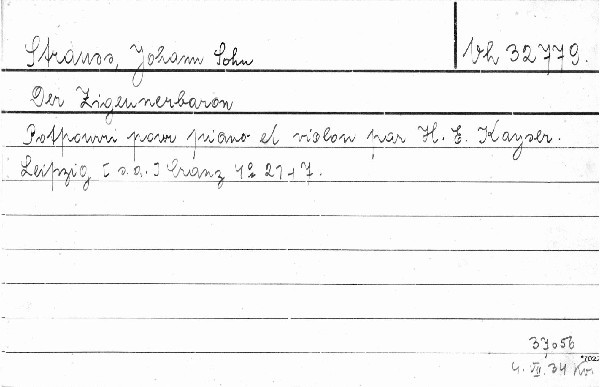 Strauss, Johann Sohn
Vh 32779.
Der Zigeunerbaron
Potpourri pour piano et violon par H. E. Kayser.
Leipzig [s.a.] Cranz 4° 21+7.
37056
4. VII. 34